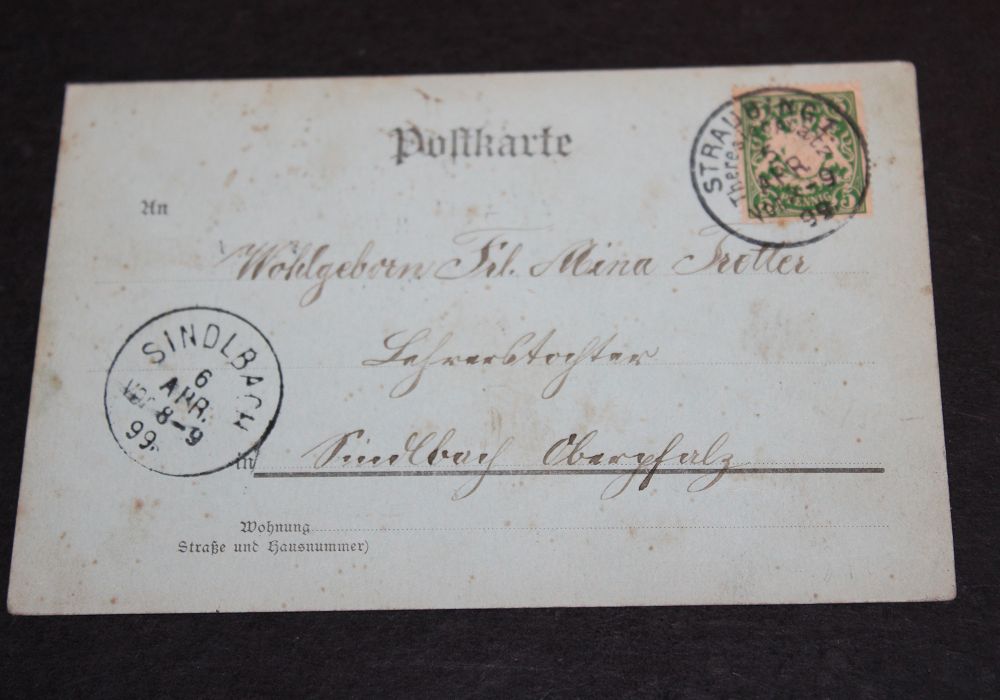 Postkarte
STRAUBING I.
Theres
APR.
99
PFENNIG
5
An
Wohlgeborn Frl. Mina Trotter
Lehrerstochter
SINDLBACH
6
APR.
Vor 8-9
99.
in Sindlbach Oberpfalz
Wohnung
Straße und Hausnummer)